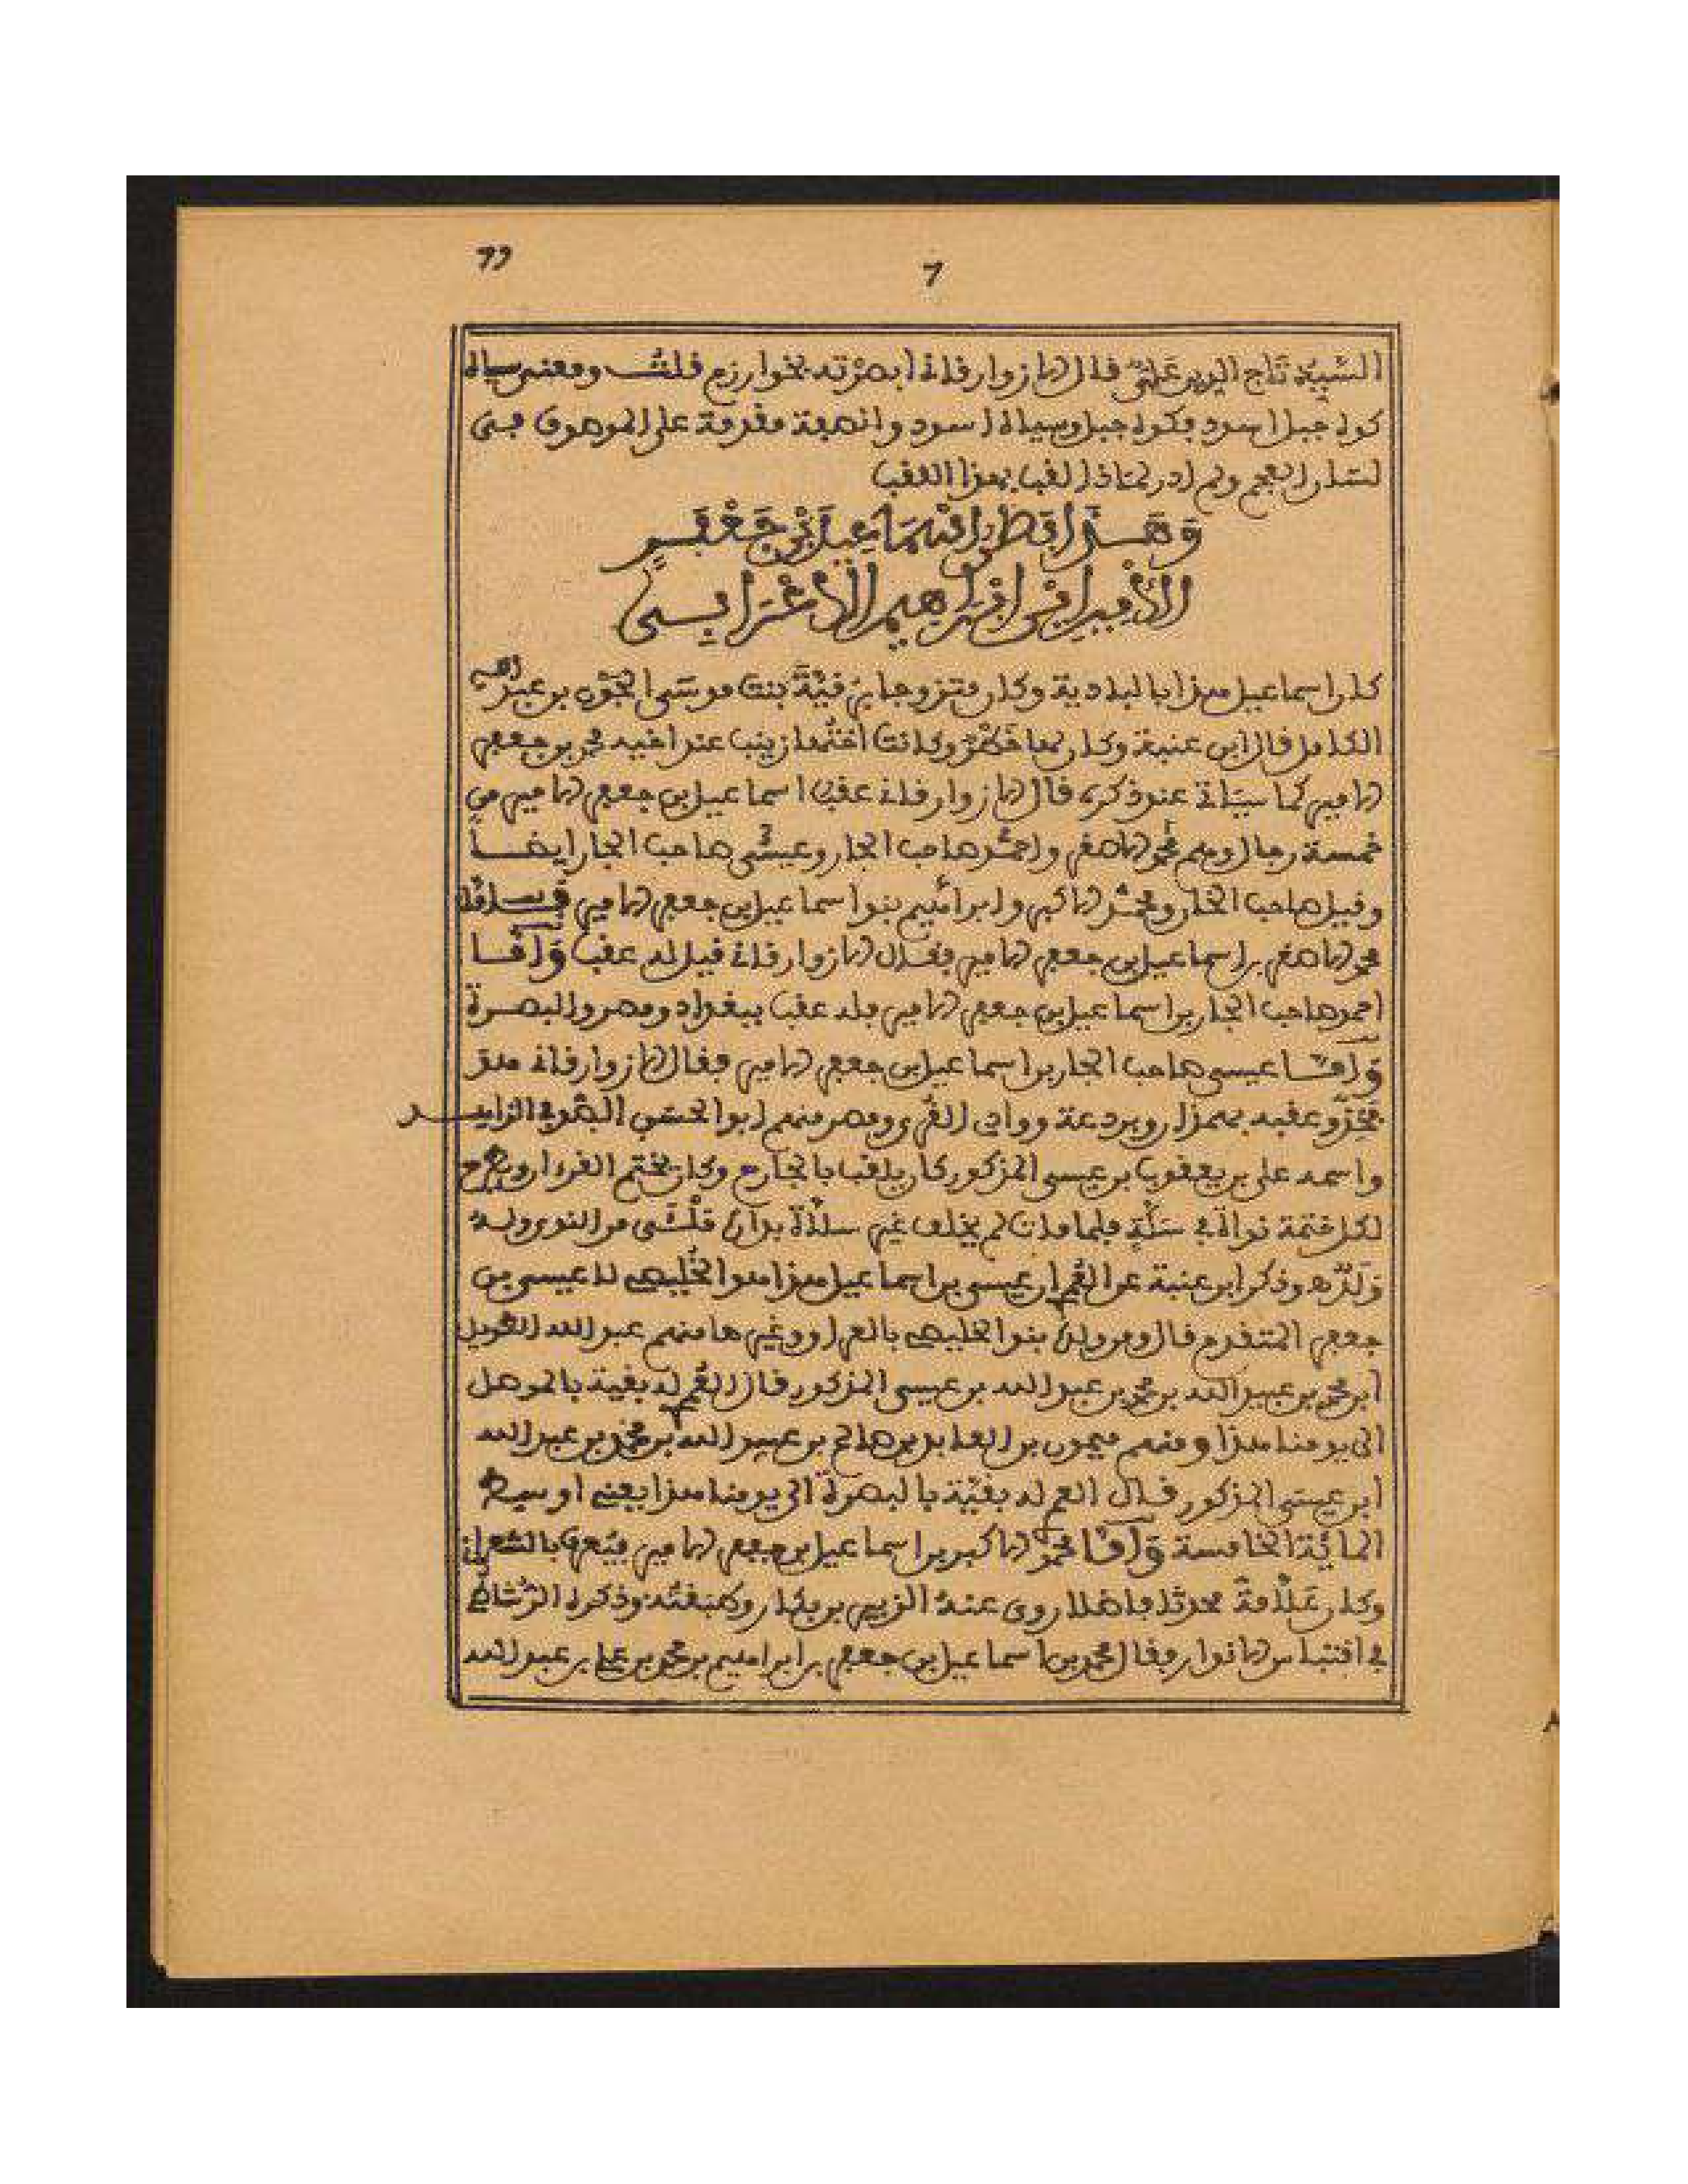 77
7
الشيخ تاج الدين علي قال الازوارقاني ابصرته بخوارزم قلت ومعنى سياه
كوه جبل اسود فكوه جبل وسياه اسود والصفة مقدمة على الموصوف في
لسان العجم ولم ادر لماذا لقب بهذا اللقب
وَهَذا قطب اسماعيل بن جَعْفَر
الأمير ابن ابراهيم الأعرابي
كان اسماعيل هذا بالبادية وكان متزوجا برقية بنت موسى الجون بن عبد الله
الكامل قال ابن عنبة وكان لها وكانت اختها زينب عند اخيه محمد بن جعفر
الامير كما سياتي عند ذكره قال الازوارقاني عقب اسماعيل بن جعفر الامير من
خمسة رجال وهم محمد الاصغر واحمد صاحب الجار وعيسى صاحب الجار ايضا
وقيل صاحب الخار ومحمد الاكبر وابراهيم بنوا اسماعيل بن جعفر الامير فاما
محمد الاصغر بن اسماعيل بن جعفر الامير فقال الازوارقاني قيل له عقب وَأما
احمد صاحب الجار بن اسماعيل بن جعفر الامير فله عقب ببغداد ومصر والبصرة
وَأما عيسى صاحب الجار بن اسماعيل بن جعفر الامير فقال الازوارقاني هو
وعقبه بهمذان وبردعة ووادي القرى ومصر منهم ابو الحسن البصري الزاهد
واسمه علي بن يعقوب بن عيسى المذكور كان يلقب بالجارح وكان يختم القرءان ويطرح
لكل ختمة نواة في سَلّة فلما مات لم يخلف غير سلاة بدات ملئى من النوى وله
وَلَدٌ وذكر ابن عنبة عن العمري ان عيسى بن اسماعيل هذا هو الخليصي لا عيسى بن
جعفر المتقدم قال ومن ولده بنوا الخليصي بالعراق وغيرها منهم عبد الله الطويل
ابن محمد بن عبيد الله بن محمد بن عبد الله بن عيسى المذكور قال العمري له بقية بالموصل
الى يومنا هذا ومنهم ميمون بن العابد بن صالح بن عبيد الله بن محمد بن عبد الله
ابن عيسى المذكور قال العمري له بقيّة بالبصرة الى يومنا هذا يعني اوسط
المائة الخامسة وَأما محمد الاكبر بن اسماعيل بن جعفر الامير فيعرف بالشعراني
وكان عَلّامةً محدثا فاضلا روى عنه الزبير بن بكار وطبقته وذكره الرشاطي
في اقتباس الانوار وقال محمد بن اسماعيل بن جعفر بن ابراهيم بن محمد بن علي بن عبد الله